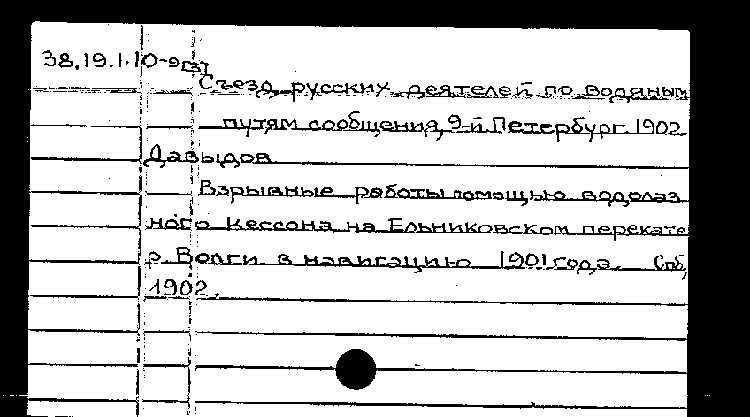 38.19.1.10-9[3]
Съезд русских деятелей по водяным
путям сообщения, 9-й Петербург. 1902
Давыдов
Взрывные работы помощью водолаз
ного Кессона на Ельниковском перекате
р. Волги в навигацию 1901 года. Спб,
1902.